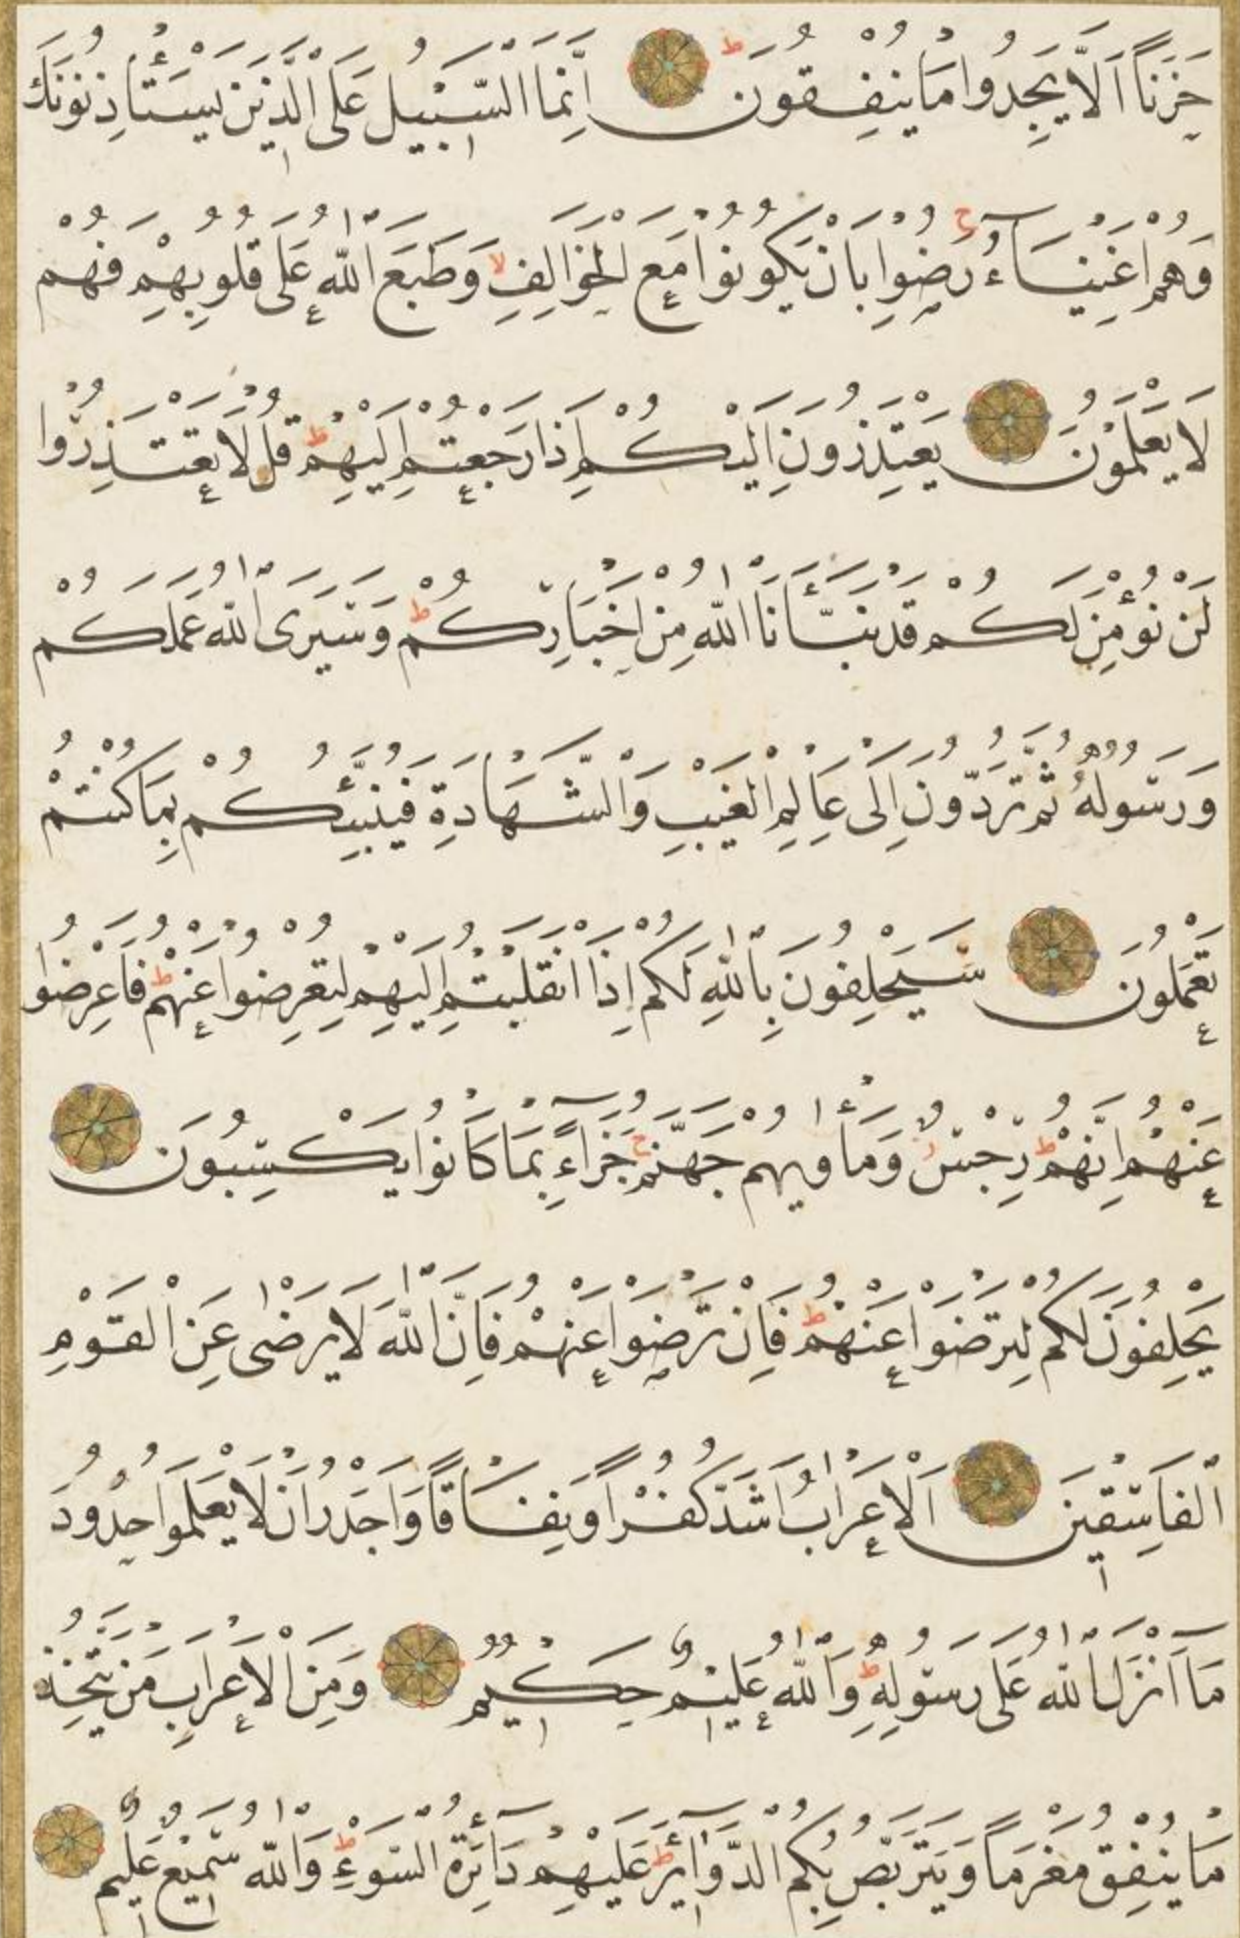 حَزَنًا اَلَّا يَجِدُوا مَا يُنْفِقُونَ ط اِنَّمَا السَّبِيلُ عَلَى الَّذِينَ يَسْتَأْذِنُونَكَ
وَهُمْ اَغْنِيَاءُ ج رَضُوا بِاَنْ يَكُونُوا مَعَ الْخَوَالِفِ لا وَطَبَعَ اللّٰهُ عَلَى قُلُوبِهِمْ فَهُمْ
لَا يَعْلَمُونَ يَعْتَذِرُونَ اِلَيْكُمْ اِذَا رَجَعْتُمْ اِلَيْهِمْ ط قُلْ لَا تَعْتَذِرُوا
لَنْ نُؤْمِنَ لَكُمْ قَدْ نَبَّأَنَا اللّٰهُ مِنْ اَخْبَارِكُمْ ط وَسَيَرَى اللّٰهُ عَمَلَكُمْ
وَرَسُولُهُ ثُمَّ تُرَدُّونَ اِلَى عَالِمِ الْغَيْبِ وَالشَّهَادَةِ فَيُنَبِّئُكُمْ بِمَا كُنْتُمْ
تَعْمَلُونَ سَيَحْلِفُونَ بِاللّٰهِ لَكُمْ اِذَا انْقَلَبْتُمْ اِلَيْهِمْ لِتُعْرِضُوا عَنْهُمْ ط فَاَعْرِضُوا
عَنْهُمْ اِنَّهُمْ ط رِجْسٌ ز وَمَأْوٰيهُمْ جَهَنَّمُ ج جَزَاءً بِمَا كَانُوا يَكْسِبُونَ
يَحْلِفُونَ لَكُمْ لِتَرْضَوْا عَنْهُمْ ط فَاِنْ تَرْضَوْا عَنْهُمْ فَاِنَّ اللّٰهَ لَا يَرْضٰى عَنِ الْقَوْمِ
الْفَاسِقِينَ اَلْاَعْرَابُ اَشَدُّ كُفْرًا وَنِفَاقًا وَاَجْدَرُ اَنْ لَا يَعْلَمُوا حُدُودَ
مَا اَنْزَلَ اللّٰهُ عَلَى رَسُولِهِ ط وَاللّٰهُ عَلِيمٌ حَكِيمٌ وَمِنَ الْاَعْرَابِ مَنْ يَتَّخِذُ
مَا يُنْفِقُ مَغْرَمًا وَيَتَرَبَّصُ بِكُمُ الدَّوَائِرَ ط عَلَيْهِمْ دَائِرَةُ السَّوْءِ ط وَاللّٰهُ سَمِيعٌ عَلِيمٌ